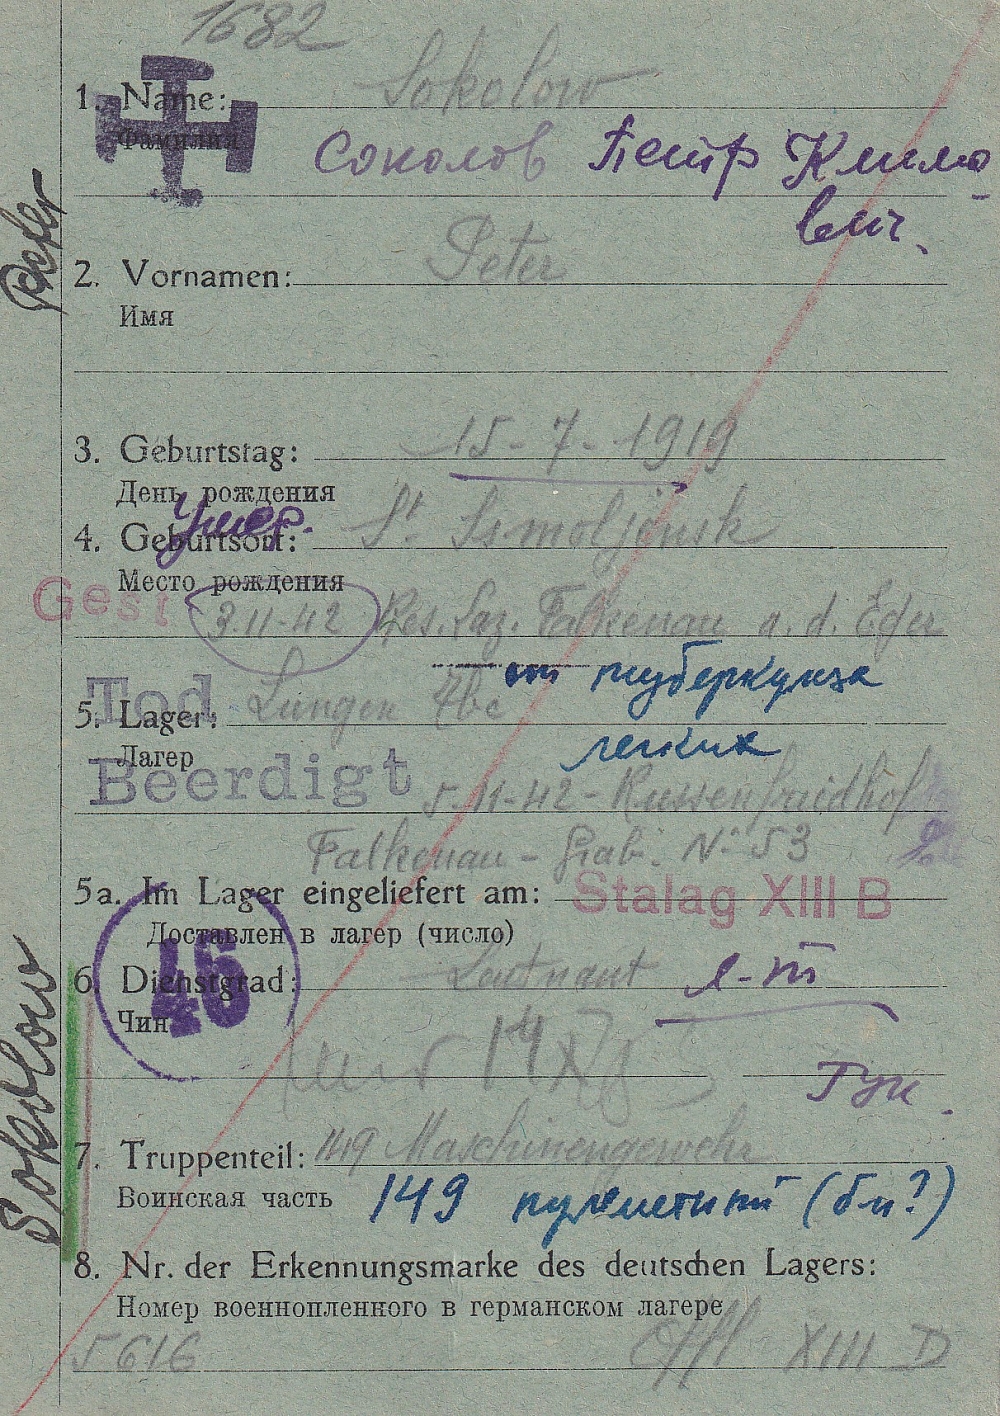 1682
1. Name: Sokolow
Фамилия
Соколов Петр Климо-
вич.
Peter
2. Vornamen: Peter
Имя
3. Geburtstag: 15-7-1919
День рождения
Умер.
4. Geburtsort: St. Ssmoljensk
Место рождения
Gest 3.11-42 Res. Laz. Falkenau a. d. Eger
от туберкулеза
Tod Lungen Tbc
5. Lager:
Лагер
легких
Beerdigt 5-11-42-Russenfriedhof
Falkenau - Grab. No 53
5a. Im Lager eingeliefert am: Stalag XIII B
Доставлен в лагер (число)
46
6. Dienstgrad: Leutnant л-т
Чин
Sokolow
7. Truppenteil: 149 Maschinengewehr
Воинская часть 149 пулеметный (бн?)
8. Nr. der Erkennungsmarke des deutschen Lagers:
Номер военнопленного в германском лагере
5616 Offl XIII D